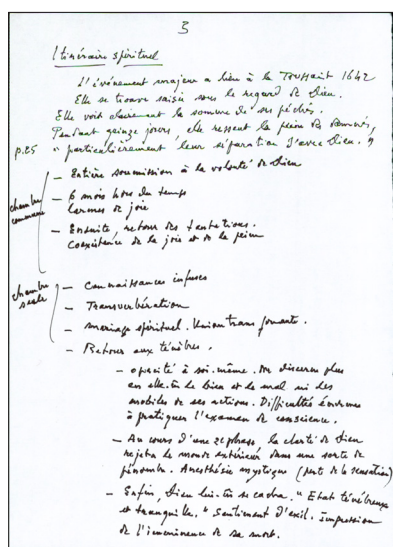 3
Itinéraire spirituel
L'événement majeur a lieu à la Toussaint 1642
Elle se trouve saisie sous le regard de Dieu.
Elle voit clairement la somme de ses péchés.
Pendant quinze jours, elle ressent la peine des damnés,
p.25 "particulièrement leur séparation d'avec Dieu."
- Entière soumission à la volonté de Dieu
chambre commune
- 6 mois hors du temps
larmes de joie
- Ensuite, retour des tentations.
Coexistence de la joie et de la peine
chambre seule
- Connaissances infuses
- Transverbération
- mariage spirituel. Union transformante.
- Retour aux ténèbres.
- opacité à soi-même. Ne discerne plus
en elle le bien et le mal ni les
mobiles de ses actions. Difficultés
à pratiquer l'examen de conscience.
- Au cours d'une 2e phase la clarté de Dieu
rejeta le monde extérieur dans une sorte de
pénombre. Anesthésie mystique (perte de la sensation)
- Enfin, Dieu lui-m se cacha. "Etat ténébreux
et tranquille." Sentiment d'exil. Impression
de l'imminence de sa mort.